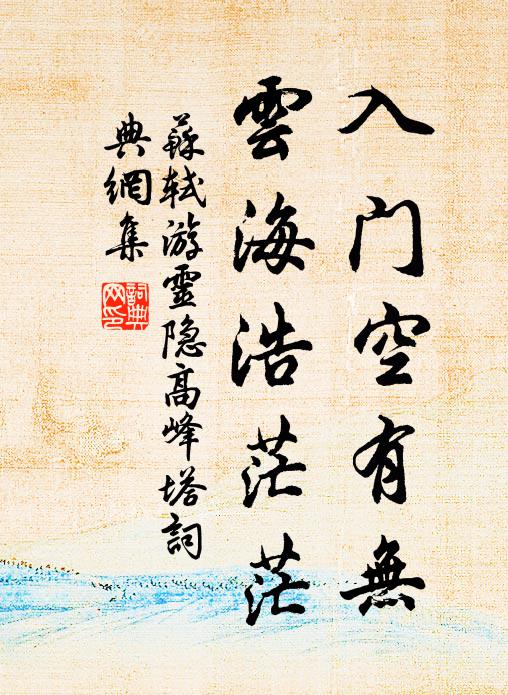 入门空有無
雲海浩茫茫
蘇軾游靈隐高峰塔詞
典網集
詞典
网印